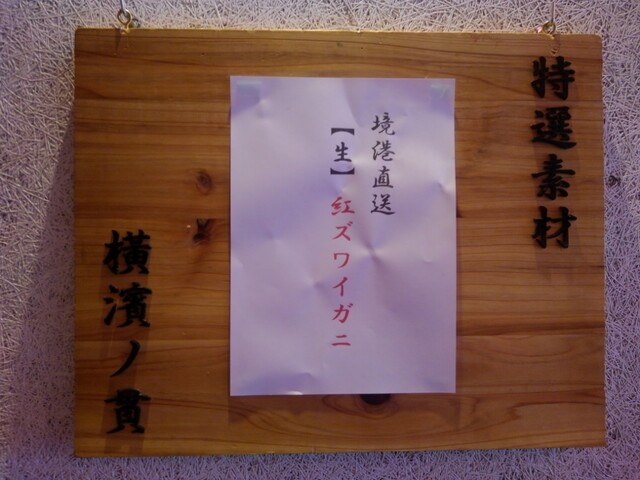 特選素材
境港直送
【生】紅ズワイガニ
横濱ノ貫